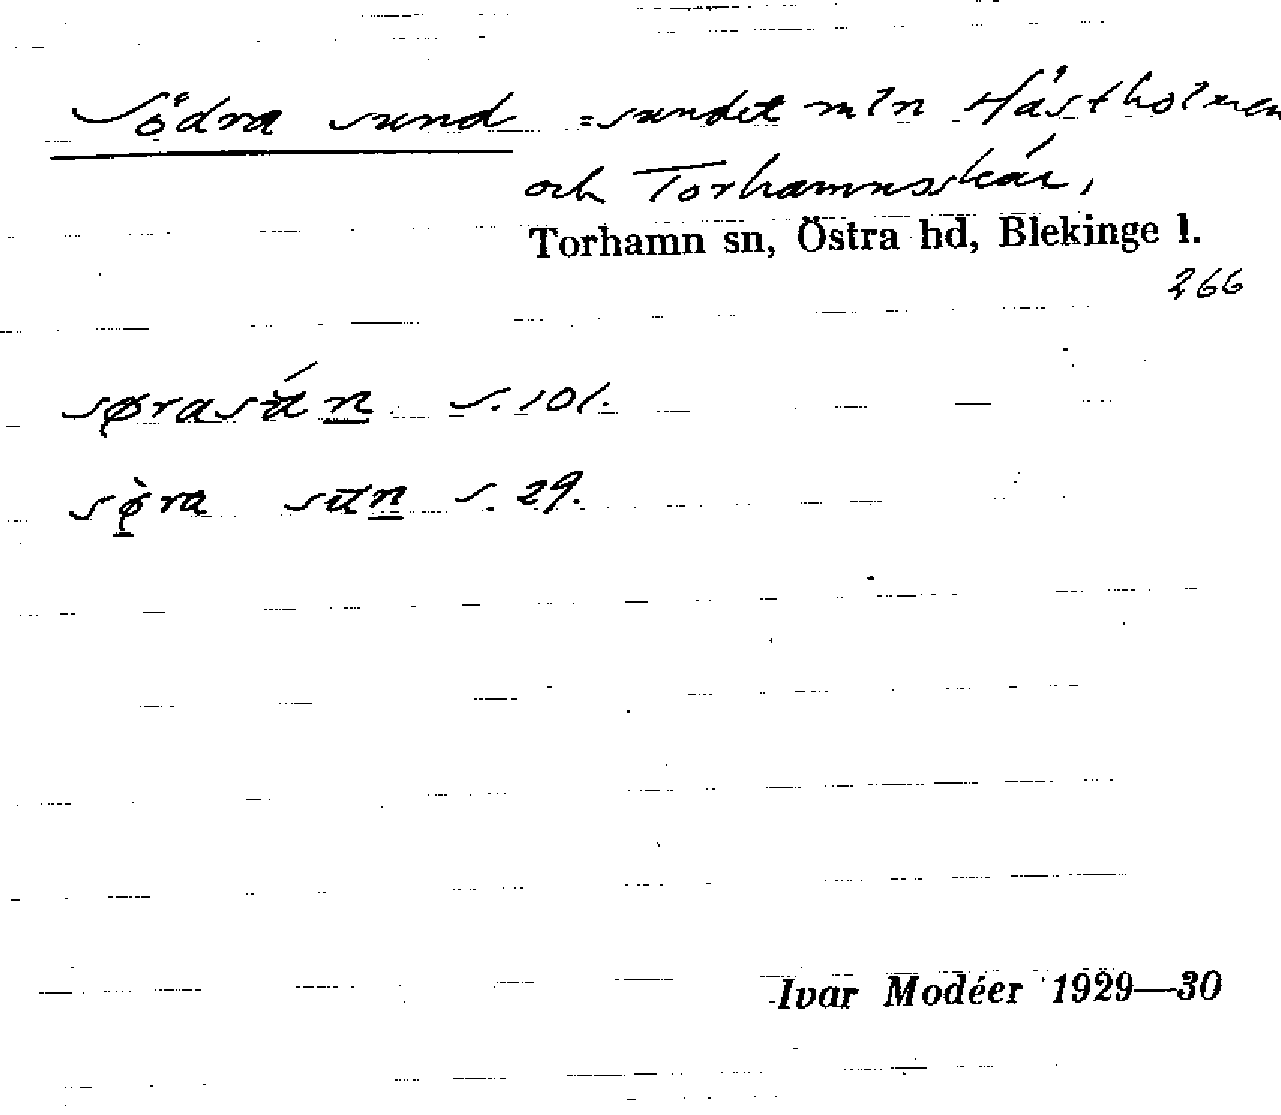 Södra sund = sundet mln Hästholmen
och Torhamnsskär,
Torhamn sn, Östra hd, Blekinge l.
266
s. 101.
s. 29.
Ivar Modéer 1929—30